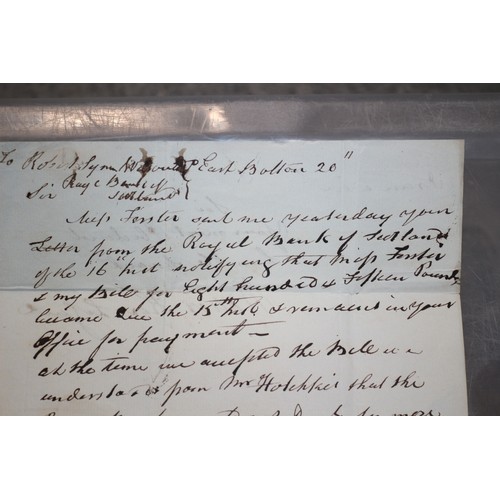 To Robt Sym Accountt East Bolton 20"
Royl Bank of
Sir Scotland
Miss Forster sent me yesterday your
Letter from the Royal Bank of Scotland
of the 16" inst notifying that Miss Forster
& my Bill for Eight hundred & Fifteen Pounds
became due the 15th inst & remains in your
Office for payment –
at the time we accepted the Bill we
understood from Mr Hotchkis that the
for more